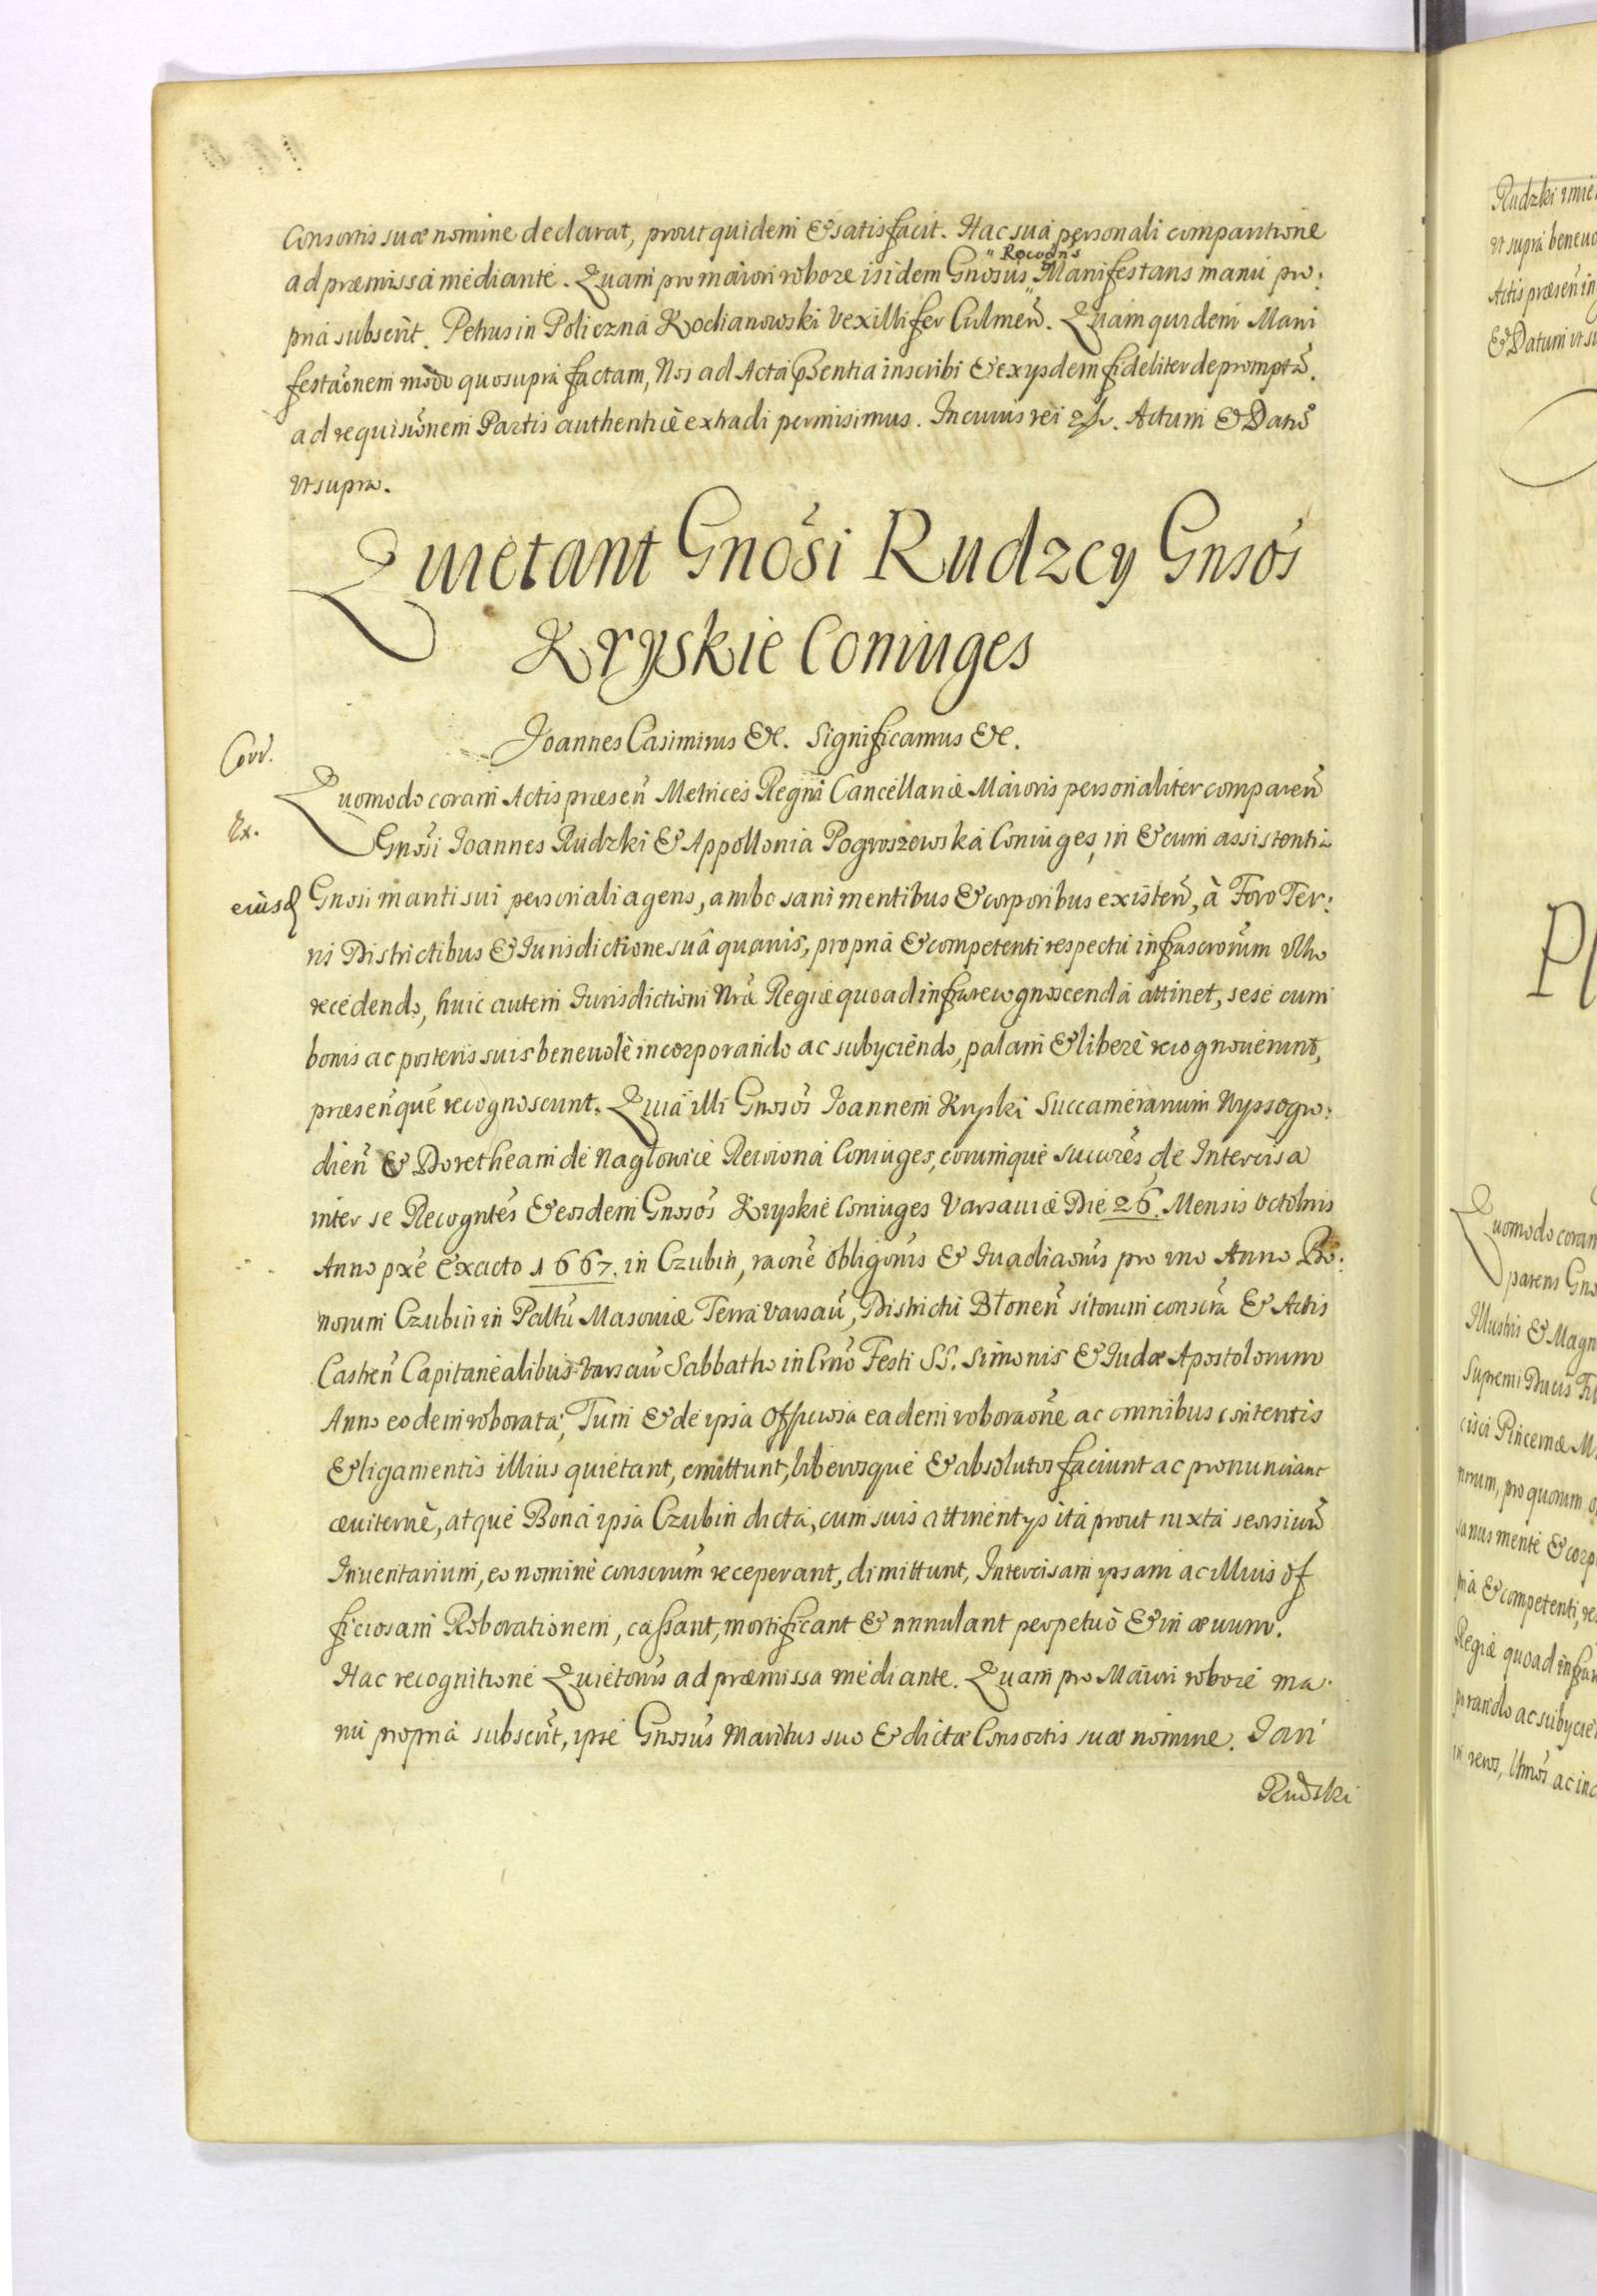 Consortis suæ nomine declarat, prout quidem & satisfacit. Hac sua personali comparitione
ad præmissa mediante. Quam pro maiori robore isidem Gnosus Recogns Manifestans manu pro:
pria subscrit. Petrus in Policzna Kochanowski Vexillifer Culmen. Quam quidem Mani
festaonem modo quo supra factam, Nos ad Acta pñsentia inscribi & ex ysdem fideliter depromptã.
ad requisiõnem Partis authenticè extradi permisimus. In cuius rei &c. Actum & Datũ
vt supra.
Quietant Gnosi Rudzcy Gnsos
Kryskie Coniuges
Joannes Casimirus &c. Significamus &c.
Corr.
Quomodo coram Actis præseñ Metrices Regni Cancellariæ Maioris personaliter compareñ
Ex.
Gnosi Joannes Rudzki & Appollonia Pogroszewska Coniuges, in & cum assistentia
eiusd Gnosi mariti sui personali agens, ambo sani mentibus & corporibus existeñ, à Foro Ter:
ris Districtibus & Iurisdictione suâ quavis, propria & competenti respectu infrascrorum
recedendo, huic autem Iurisdictioni Nræ Regiæ quoad infra recognoscenda attinet, sese cum
bonis ac posteris suis beneuolè incorporando ac subyciendo, palam & liberè recognouerunt,
præseñque recognoscunt. Quia illi Gnosos Joannem Kryski Succamerarium Wyssogro:
dieñ & Doretheam de Nagłowice Reiowna Coniuges, eorumque succores de Intercisa
inter se Recogntes & eosdem Gnosos Kryskie Coniuges Varsauiæ Die 26. Mensis Octobris
Anno pxe exacto 1667. in Czubin, raone obligonis & Inuadiaonis pro uno Anno Bo:
norum Czubin in Pallũ Masouiæ Terra Varsau, Districtu Błoneñ sitorum conscra & Actis
Castreñ Capitanealibus Varsau Sabbatho in Crno Festi SS. Simonis & Iudæ Apostolorum
Anno eodem roborata, Tum & de ipsa officiosa eadem roboraone ac omnibus contentis
& ligamentis illius quietant, emittunt, liberosque & absolutos faciunt ac pronunciant
æuiternè, atque Bona ipsa Czubin dicta, cum suis attinentys ita prout iuxta seorsiuũ
Inuentarium, eo nomine conscrum receperant, dimittunt, Intercisam ipsam ac illius of
ficiosam Roborationem, cassant, mortificant & annulant perpetuò & in æuum.
Hac recognitione Quietonis ad præmissa mediante. Quam pro Maiori robore ma
nu propria subscrit, ipse Gnosus Maritus suo & dictæ Consortis suæ nomine. Jan
Rudzki